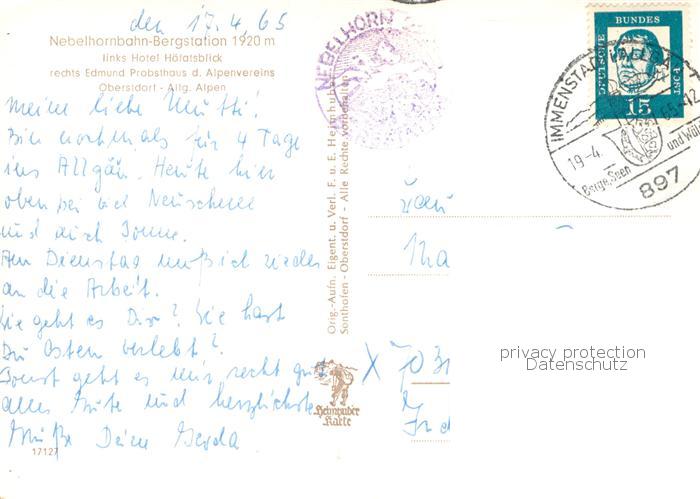 den 17.4.65
Nebelhornbahn-Bergstation 1920 m
links Hotel Höfatsblick
rechts Edmund Probsthaus d. Alpenvereins
Oberstdorf - Allg. Alpen
Meine liebe Mutti!
Bin nochmals für 4 Tage
ins Allgäu. Heute hier
oben bei viel Neuschnee
und auch Sonne.
Am Dienstag muß ich wieder
an die Arbeit.
Wie geht es Dir? Wie hast
Du Ostern verlebt?
Sonst geht es mir recht gut
alles Gute und herzlichste
Grüße Deine Gerda
17127
Orig.-Aufn. Eigent. u. Verl. F. u. E. Heimhuber
Sonthofen - Oberstdorf - Alle Rechte vorbehalten
Heimhuber
Karte
NEBELHORN
DEUTSCHE BUNDESPOST
15
IMMENSTADT
19.-4.65-12
Berge, Seen und
897
Frau
X 703
privacy protection
Datenschutz